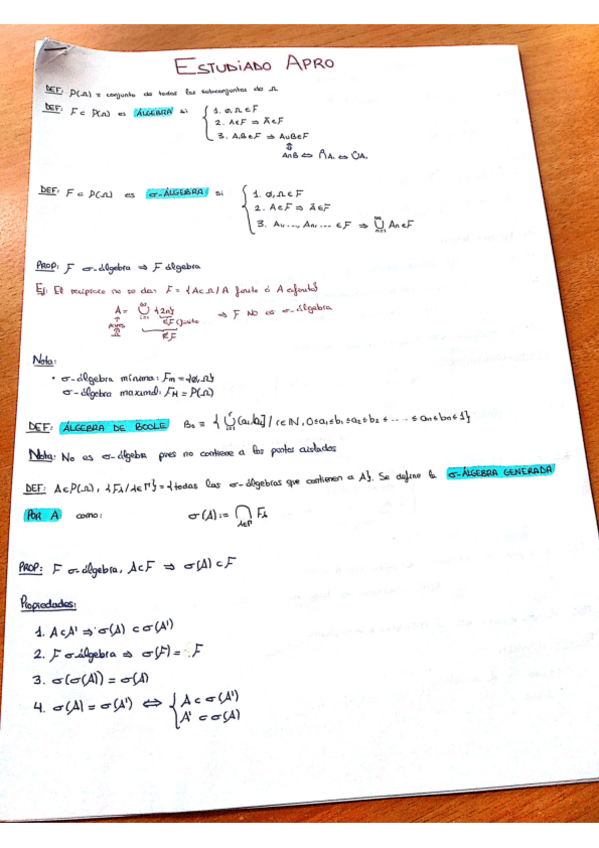 ESTUDIADO APRO
DEF: P(Ω) = conjunto de todos los subconjuntos de Ω
DEF: F ⊂ P(Ω) es ÁLGEBRA si { 1. ø, Ω ∈ F
2. A ∈ F ⇒ Ā ∈ F
3. A, B ∈ F ⇒ A∪B ∈ F
⇕
A∩B ⇔ ∩Aᵢ ⇔ ∪Aᵢ
DEF: F ⊂ P(Ω) es σ-ÁLGEBRA si { 1. ø, Ω ∈ F
2. A ∈ F ⇒ Ā ∈ F
3. A₁, ..., Aₙ, ... ∈ F ⇒ ∞∪n=1 Aₙ ∈ F
PROP: F σ-álgebra ⇒ F álgebra
Ej: El recíproco no se da: F = {A⊂Ω / A finito ó Ā finito}
A = ∞∪i=1 {2n} ⇒ F NO es σ-álgebra
∈F finito
∉F
Nota:
• σ-álgebra mínima: Fm = {ø, Ω}
σ-álgebra maximal: FM = P(Ω)
DEF: ÁLGEBRA DE BOOLE B₀ = { r∪i=1 (aᵢ, bᵢ] / r∈ℕ, 0≤a₁≤b₁≤a₂≤b₂≤ ... ≤aₙ≤bₙ≤1}
Nota: No es σ-álgebra pues no contiene a los puntos aislados
DEF: A∈P(Ω), {Fλ / λ∈Γ} = {todas las σ-álgebras que contienen a A}. Se define la σ-ÁLGEBRA GENERADA
POR A como: σ(A) := ∩λ∈Γ Fλ
PROP: F σ-álgebra, A⊂F ⇒ σ(A) ⊂ F
Propiedades:
1. A⊂A' ⇒ σ(A) ⊂ σ(A')
2. F σ-álgebra ⇒ σ(F) = F
3. σ(σ(A)) = σ(A)
4. σ(A) = σ(A') ⇔ { A ⊂ σ(A')
A' ⊂ σ(A)